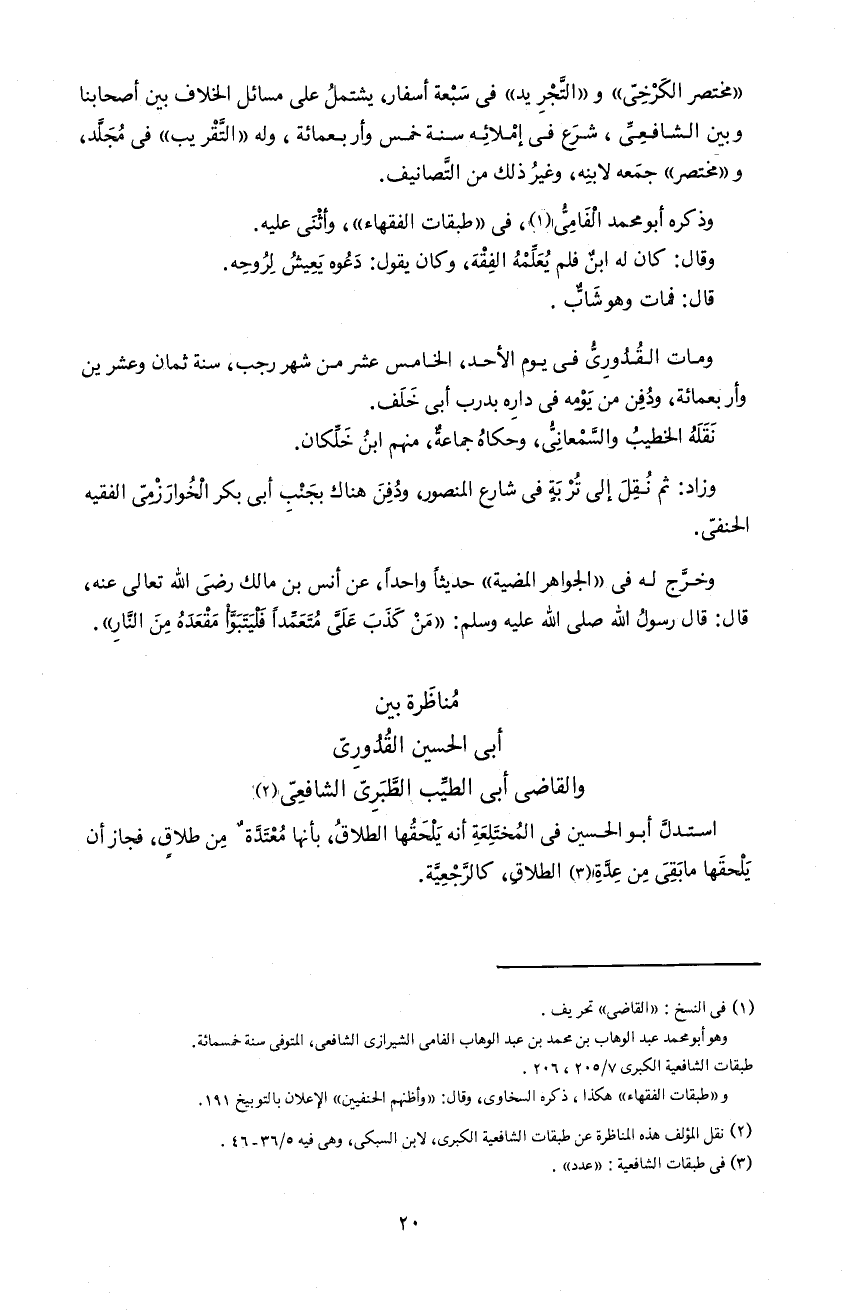 «مختصر الكَرْخِىّ» و «التَّجْرِ يد» فى سَبْعة أسفار، يشتملُ على مسائل الخلاف بين أصحابنا
و بين الشافعِىِّ ، شرَع فى إمْلائِه سنة خمس وأر بعمائة ، وله «التَّقْرِ يب» فى مُجَلَّد،
و «مختصر» جمَعه لابنِه، وغيرُ ذلك من التَّصانيف.
وذكره أبو محمد الْفَامِىُّ(١)، فى «طبقات الفقهاء»، وأثْنَى عليه.
وقال: كان له ابنٌ فلم يُعَلِّمْهُ الفِقْهَ، وكان يقول: دَعُوه يَعِيشُ لِرُوحِه.
قال: فمات وهو شَابٌّ .
ومات القُدُورِىُّ فى يوم الأحد، الخامس عشر من شهر رجب، سنة ثمان وعشر ين
وأر بعمائة، ودُفِن من يَوْمِه فى دارِه بدرب أبى خَلَف.
نَقَلَهُ الخطيبُ والسَّمْعانِىُّ، وحكاهُ جماعةٌ، منهم ابنُ خَلِّكان.
وزاد: ثم نُقِلَ إلى تُرْ بَةٍ فى شارع المنصور، ودُفِنَ هناك بجَنْبِ أبى بكر الْخُوارَزْمِىّ الفقيه
الحنفىّ.
وخرَّج له فى «الجواهر المضية» حديثاً واحداً، عن أنس بن مالك رضىَ الله تعالى عنه،
قال: قال رسولُ الله صلى الله عليه وسلم: «مَنْ كَذَبَ عَلَىَّ مُتَعَمِّداً فَلْيَتَبَوَّأْ مَقْعَدَهُ مِنَ النَّارِ».
مُناظَرة بين
أبى الحسين القُدُورِىّ
والقاضى أبى الطيِّب الطَّبَرِىّ الشافعىّ(٢)
استدلَّ أبو الحسين فى المُخْتَلِعَةِ أنه يَلْحَقُها الطلاقُ، بأنها مُعْتَدَّةٌ مِن طلاقٍ، فجاز أن
يَلْحقَها مابَقِىَ مِن عِدَّةِ(٣) الطلاقِ، كالرَّجْعِيَّة.
(١) فى النسخ : «القاضى» تحر يف .
وهو أبو محمد عبد الوهاب بن محمد بن عبد الوهاب الفامى الشيرازى الشافعى، المتوفى سنة خمسمائة.
طبقات الشافعية الكبرى ٢٠٥/٧ ، ٢٠٦ .
و «طبقات الفقهاء» هكذا ، ذكره السخاوى، وقال: «وأظنهم الحنفيين» الإعلان بالتوبيخ ١٩١.
(٢) نقل المؤلف هذه المناظرة عن طبقات الشافعية الكبرى، لابن السبكى، وهى فيه ٣٦/٥ـ٤٦ .
(٣) فى طبقات الشافعية : «عدد» .
٢٠